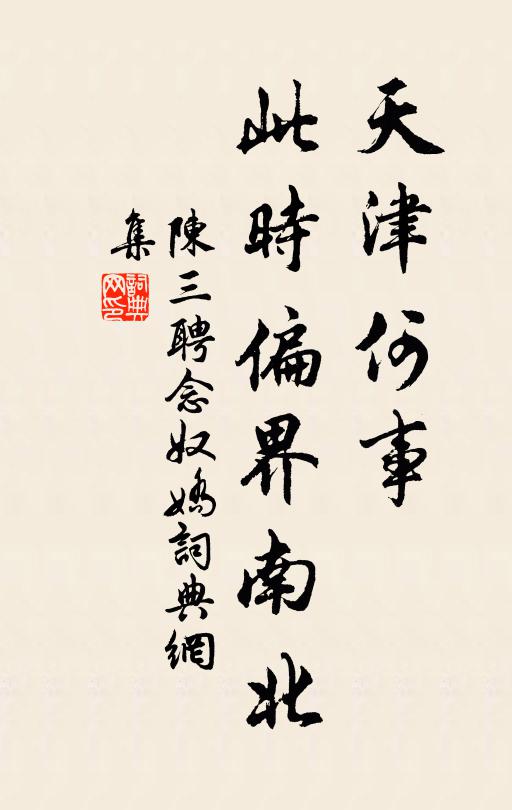 天津何事
此時偏界南北
陳三聘念奴嬌詞典網
集
詞典网印